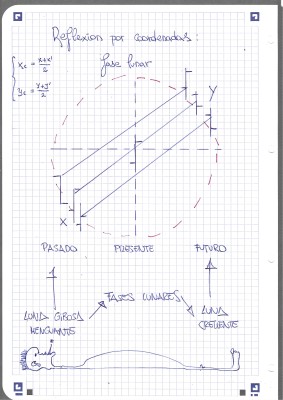 Reflexion por coordenadas:
fase lunar
xc = x+x'/2
yc = y+y'/2
Y
X
PASADO PRESENTE FUTURO
FASES LUNARES
LUNA GIBOSA MENGUANTE
LUNA CRECIENTE